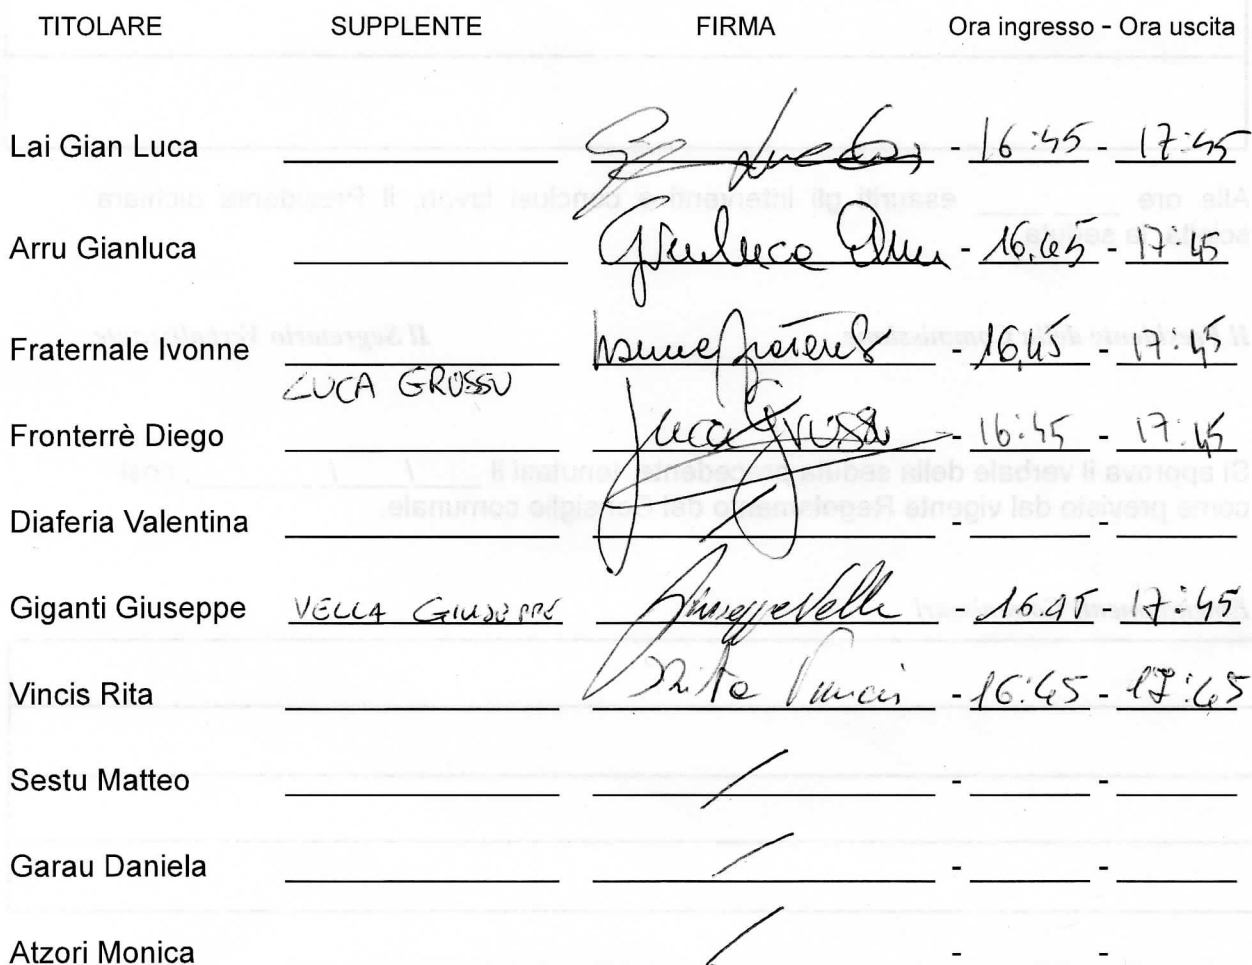 TITOLARE SUPPLENTE FIRMA Ora ingresso - Ora uscita
Lai Gian Luca - 16:45 - 17:45
Arru Gianluca Gianluca Arru - 16,45 - 17:45
Fraternale Ivonne - 16,45 - 17:45
LUCA GROSSO
Fronterrè Diego Luca Grosso - 16:45 - 17:45
Diaferia Valentina / - -
Giganti Giuseppe VELLA GIUSEPPE Giuseppe Vella - 16.45 - 17:45
Vincis Rita Rita Vincis - 16:45 - 17:45
Sestu Matteo / - -
Garau Daniela / - -
Atzori Monica / - -